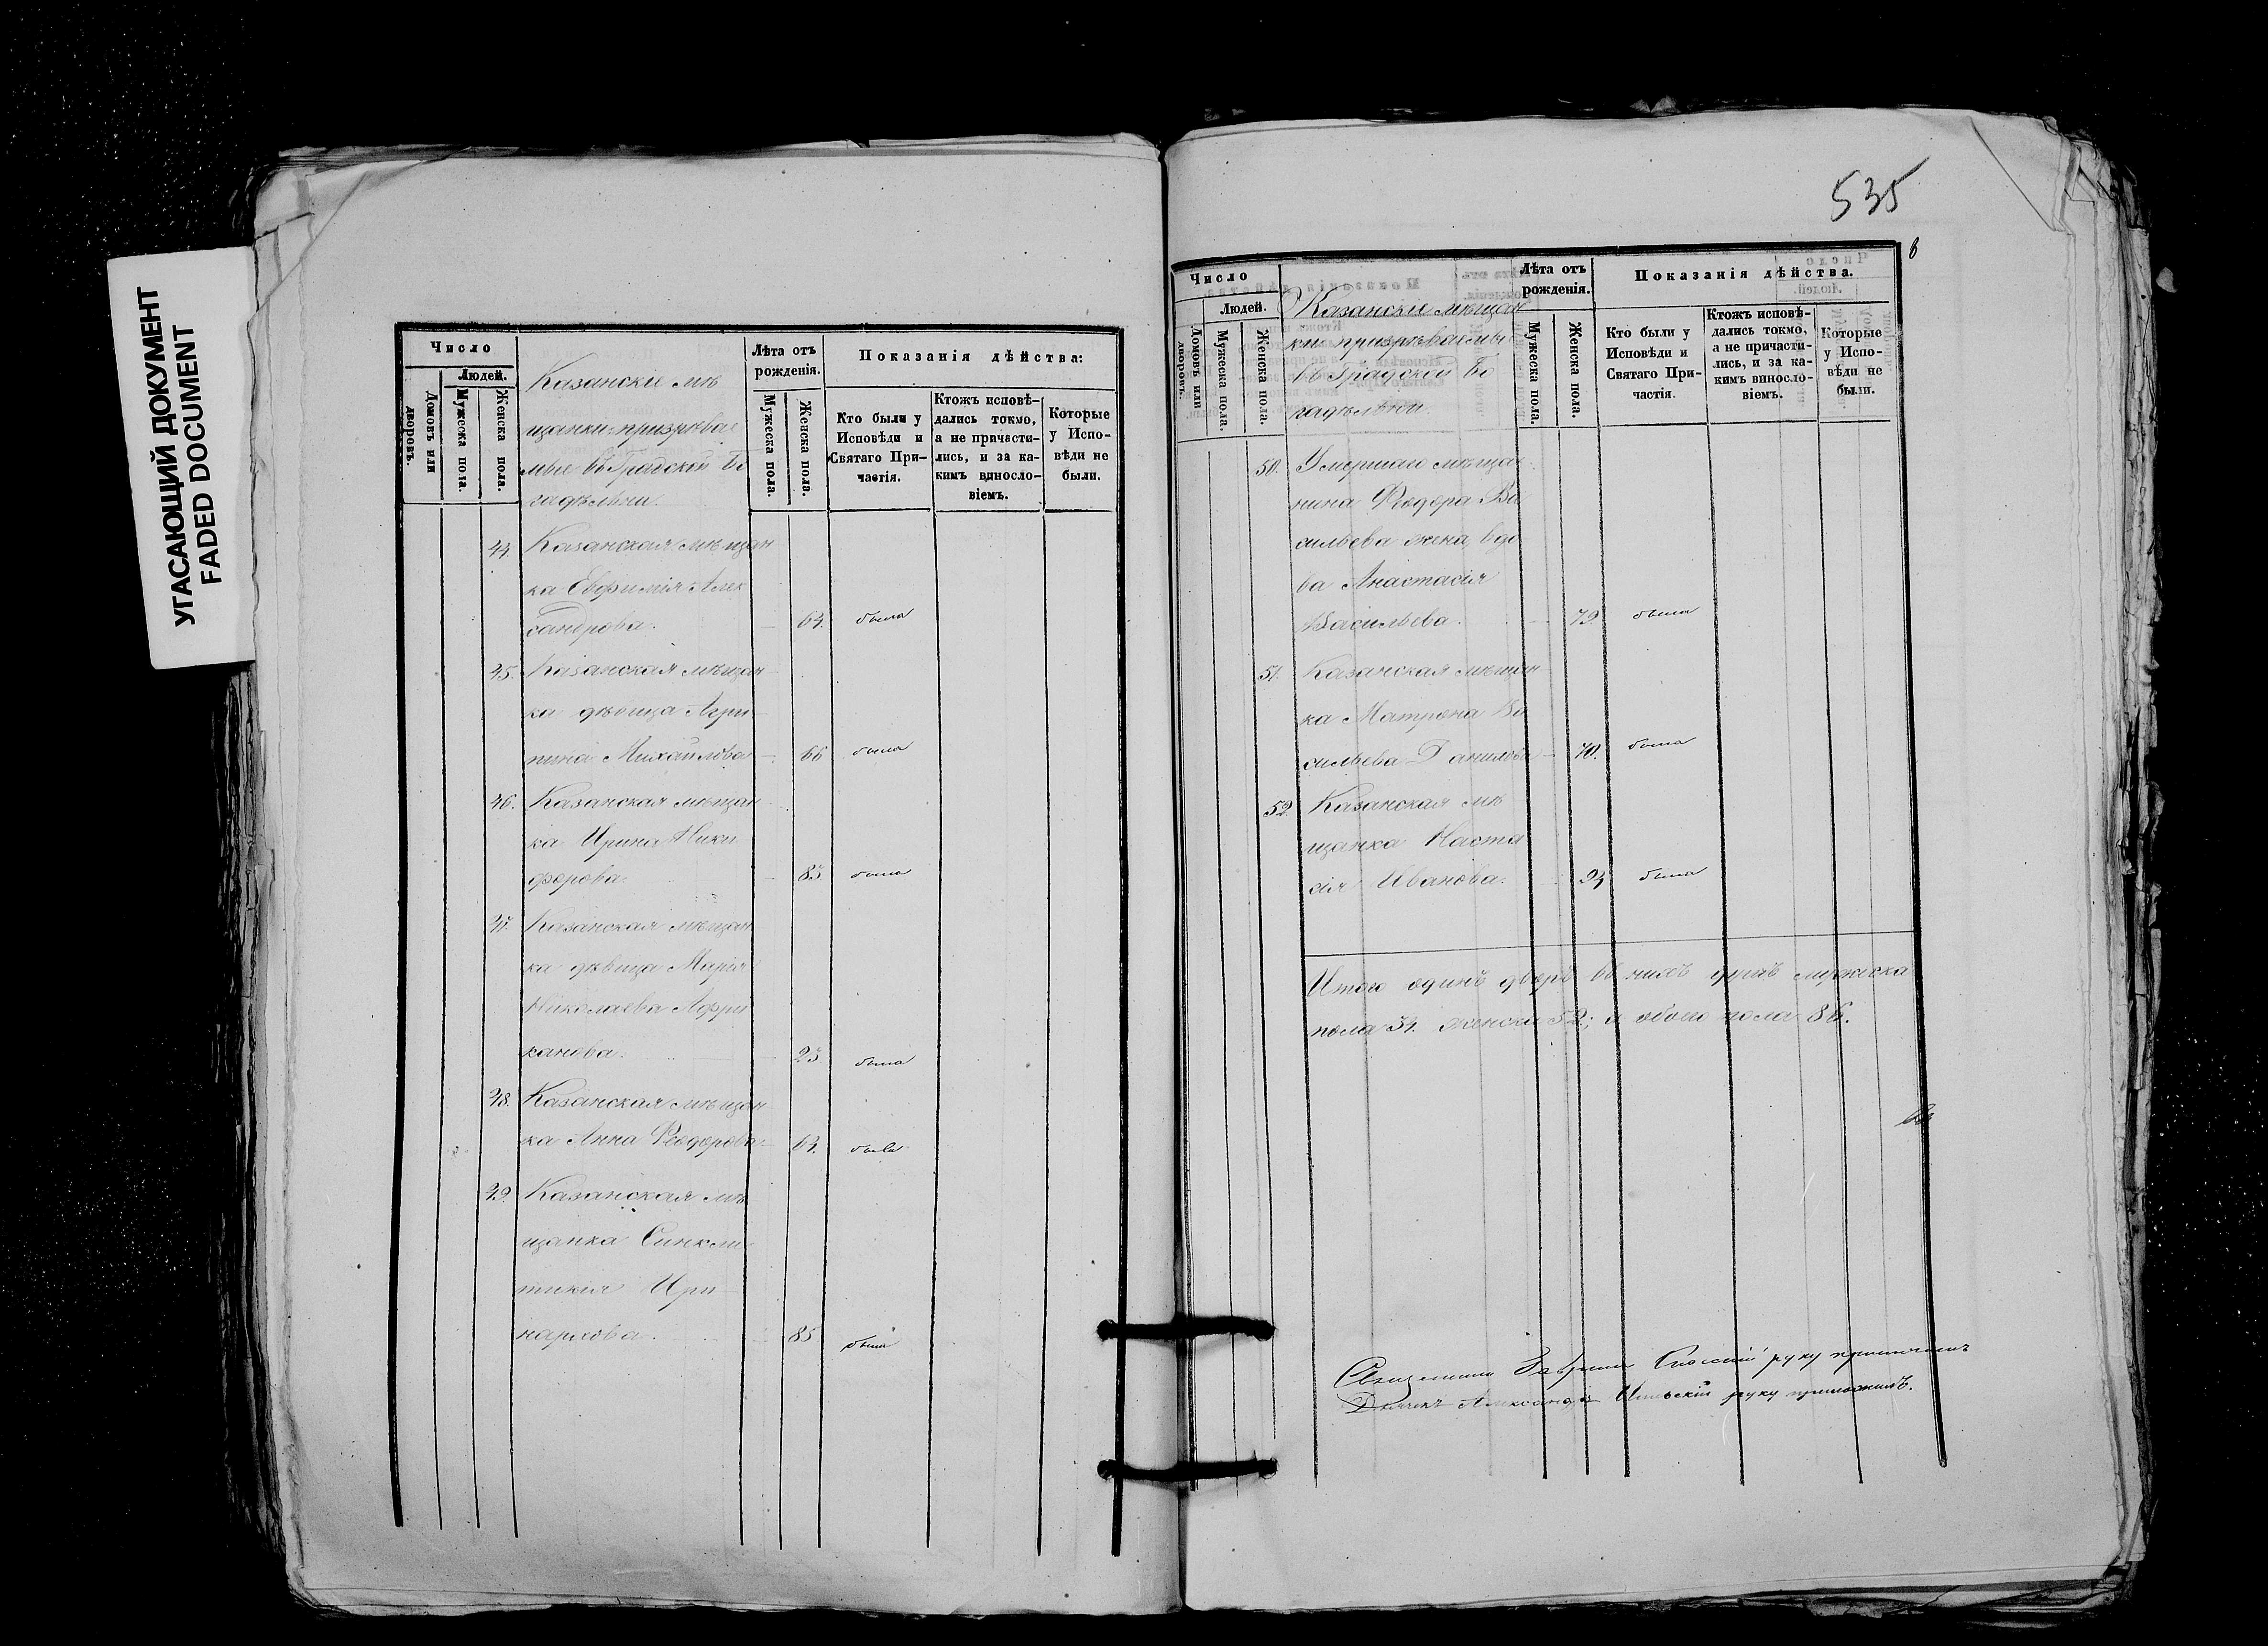 УГАСАЮЩИЙ ДОКУМЕНТ
FADED DOCUMENT
Число
Людей.
Домовъ или дворовъ.
Мужеска пола.
Женска пола.
Казанскіе мѣ
щанки призрѣвае
мые въ Градской Бо
гадѣльни.
Лѣта отъ рожденія.
Мужеска пола.
Женска пола.
Показанія дѣйства:
Кто были у Исповѣди и Святаго Причастія.
Ктожъ исповѣдались токмо, а не причастились, и за какимъ винословіемъ.
Которые у Исповѣди не были.
44. Казанская мѣщан
ка Евфимія Алек
сандрова. 64. была
45. Казанская мѣщан
ка дѣвица Агри
пина Михайлова 66 была
46. Казанская мѣщан
ка Ирина Ники
форова. 85 была
47. Казанская мѣщан
ка дѣвица Марія
Николаева Афри
канова. 25 была
48. Казанская мѣщан
ка Анна Ѳеодорова 64. была
49. Казанская мѣ
щанка Синкли
тикія Ири
нархова. 85 была
535
6
Число
Людей.
Домовъ или дворовъ.
Мужеска пола.
Женска пола.
Казанскіе мѣщан
ки призрѣваемые
въ Градской Бо
гадѣльни.
Лѣта отъ рожденія.
Мужеска пола.
Женска пола.
Показанія дѣйства.
Кто были у Исповѣди и Святаго Причастія.
Ктожъ исповѣдались токмо, а не причастились, и за какимъ винословіемъ.
Которые у Исповѣди не были.
50. Умершаго мѣщан
нина Ѳеодора Ва
сильева жена, вдо
ва Анастасія
Васильева. 79. была
51. Казанская мѣщан
ка Матрона Ва
сильева Данилова 70. была
52. Казанская мѣ
щанка Наста
сія Иванова. 94 была
Итого одинъ дворъ въ нихъ душъ мужеска
пола 34. женска 52; и обоего пола 86.
Священникъ Гавріилъ Спасскій руку приложилъ
Дьячекъ Александръ руку приложилъ.